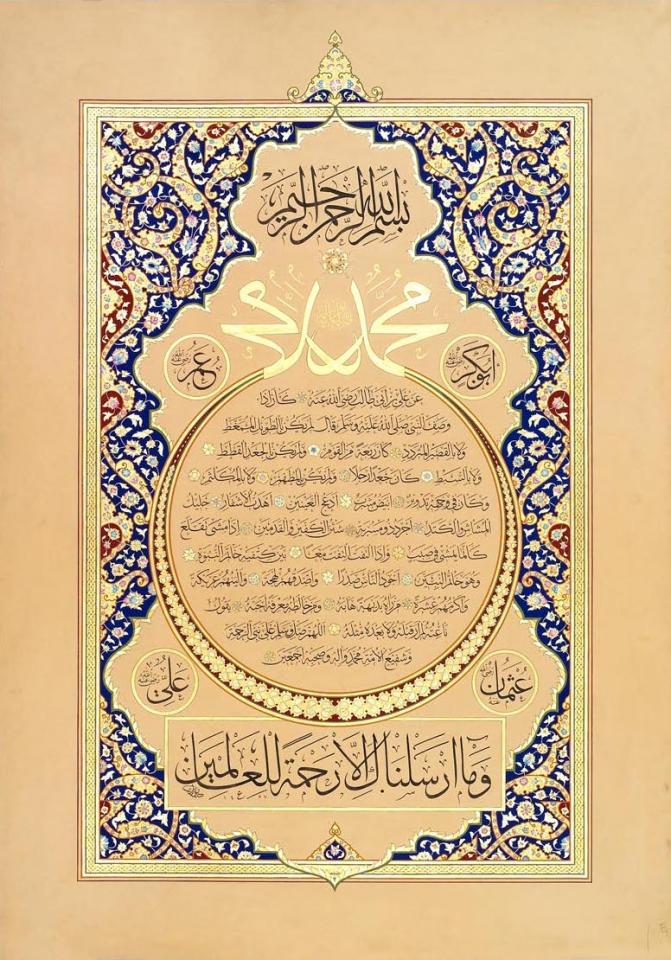 بسم الله الرحمن الرحيم
محمد محمد
ابوبكر رضي الله عنه
عمر رضي الله عنه
عن علي بن ابي طالب رضي الله عنه كان اذا
وصف النبي صلى الله عليه وسلم قال لم يكن بالطويل الممغط
ولا بالقصير المتردد كان ربعة من القوم ولم يكن بالجعد القطط
ولا بالسبط كان جعدا رجلا ولم يكن بالمطهم ولا بالمكلثم
وكان في وجهه تدوير ابيض مشرب ادعج العينين اهدب الاشفار جليل
المشاش والكتد اجرد ذو مسربة شثن الكفين والقدمين اذا مشى تقلع
كانما يمشي في صبب واذا التفت التفت معا بين كتفيه خاتم النبوة
وهو خاتم النبيين اجود الناس صدرا واصدقهم لهجة والينهم عريكة
واكرمهم عشرة من رآه بديهة هابه ومن خالطه معرفة احبه يقول
ناعته لم ار قبله ولا بعده مثله اللهم صل وسلم على نبي الرحمة
وشفيع الامة محمد وآله وصحبه اجمعين
عثمان رضي الله عنه
علي رضي الله عنه
وما ارسلناك الا رحمة للعالمين